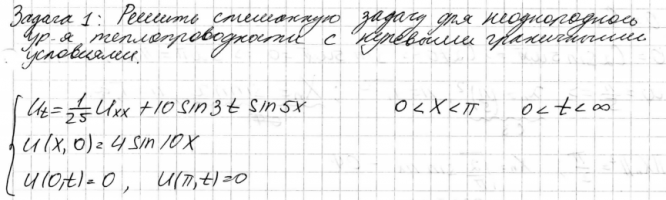 Задача 1: Решить смешанную задачу для неоднородного
ур-я теплопроводности с нулевыми граничными
условиями.
Ut = 1/25 Uxx + 10 sin3t sin5x 0 < x < π 0 < t < ∞
U(x, 0) = 4 sin 10x
U(0,t) = 0 , U(π,t) = 0